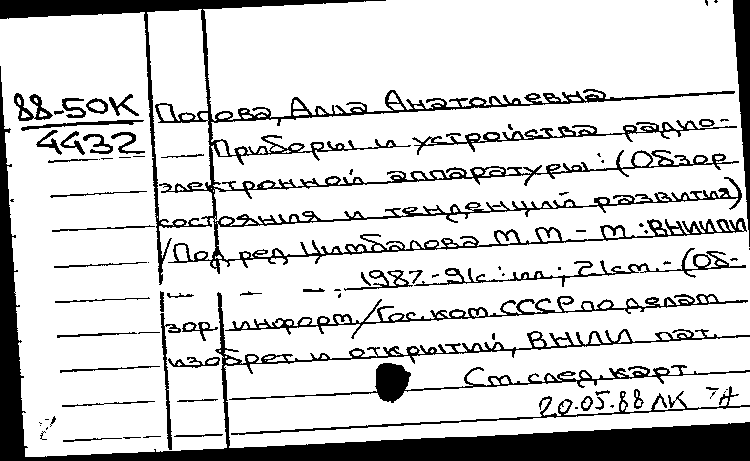 88-50К
4432
Попова, Алла Анатольевна.
Приборы и устройства радио-
электронной аппаратуры: (Обзор
состояния и тенденций развития)
/Под ред Цимбалова М.М. - М.: ВНИИПИ
1987. - 91с.: ил; 21см. - (Об-
зор. информ./Гос. ком. СССР по делам
изобрет. и открытий, ВНИИ пат.
См. след. карт.
20.05.88 ЛК